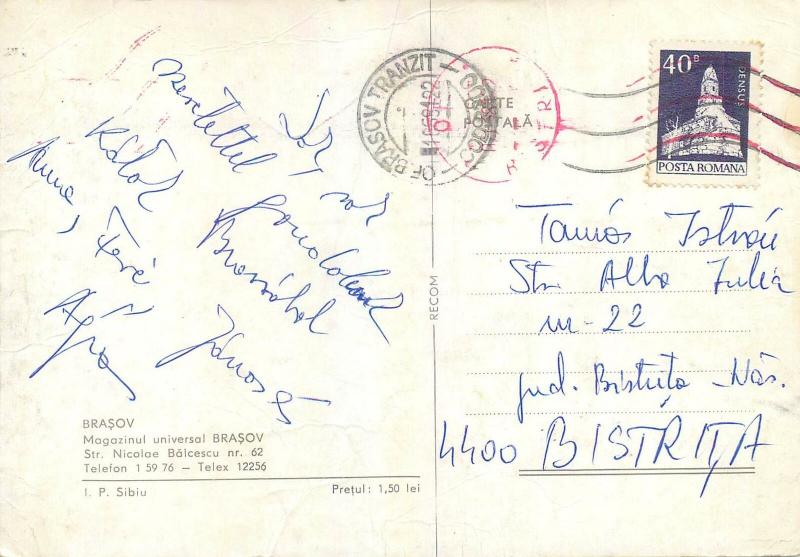 szeretettel gondolunk
Rátok Brassóból
Anna, Feri, Jánosés
Ágra
BRAȘOV
Magazinul universal BRAȘOV
Str. Nicolae Bălcescu nr. 62
Telefon 1 59 76 — Telex 12256
I. P. Sibiu
Prețul: 1,50 lei
RECOM
OF BRASOV TRANZIT
CARTE
POȘTALĂ
40B
DENSUȘ
POSTA ROMANA
Tamás István
Str. Alba Iulia
nr-22
jud. Bistrița-Năs.
4400 BISTRIȚA